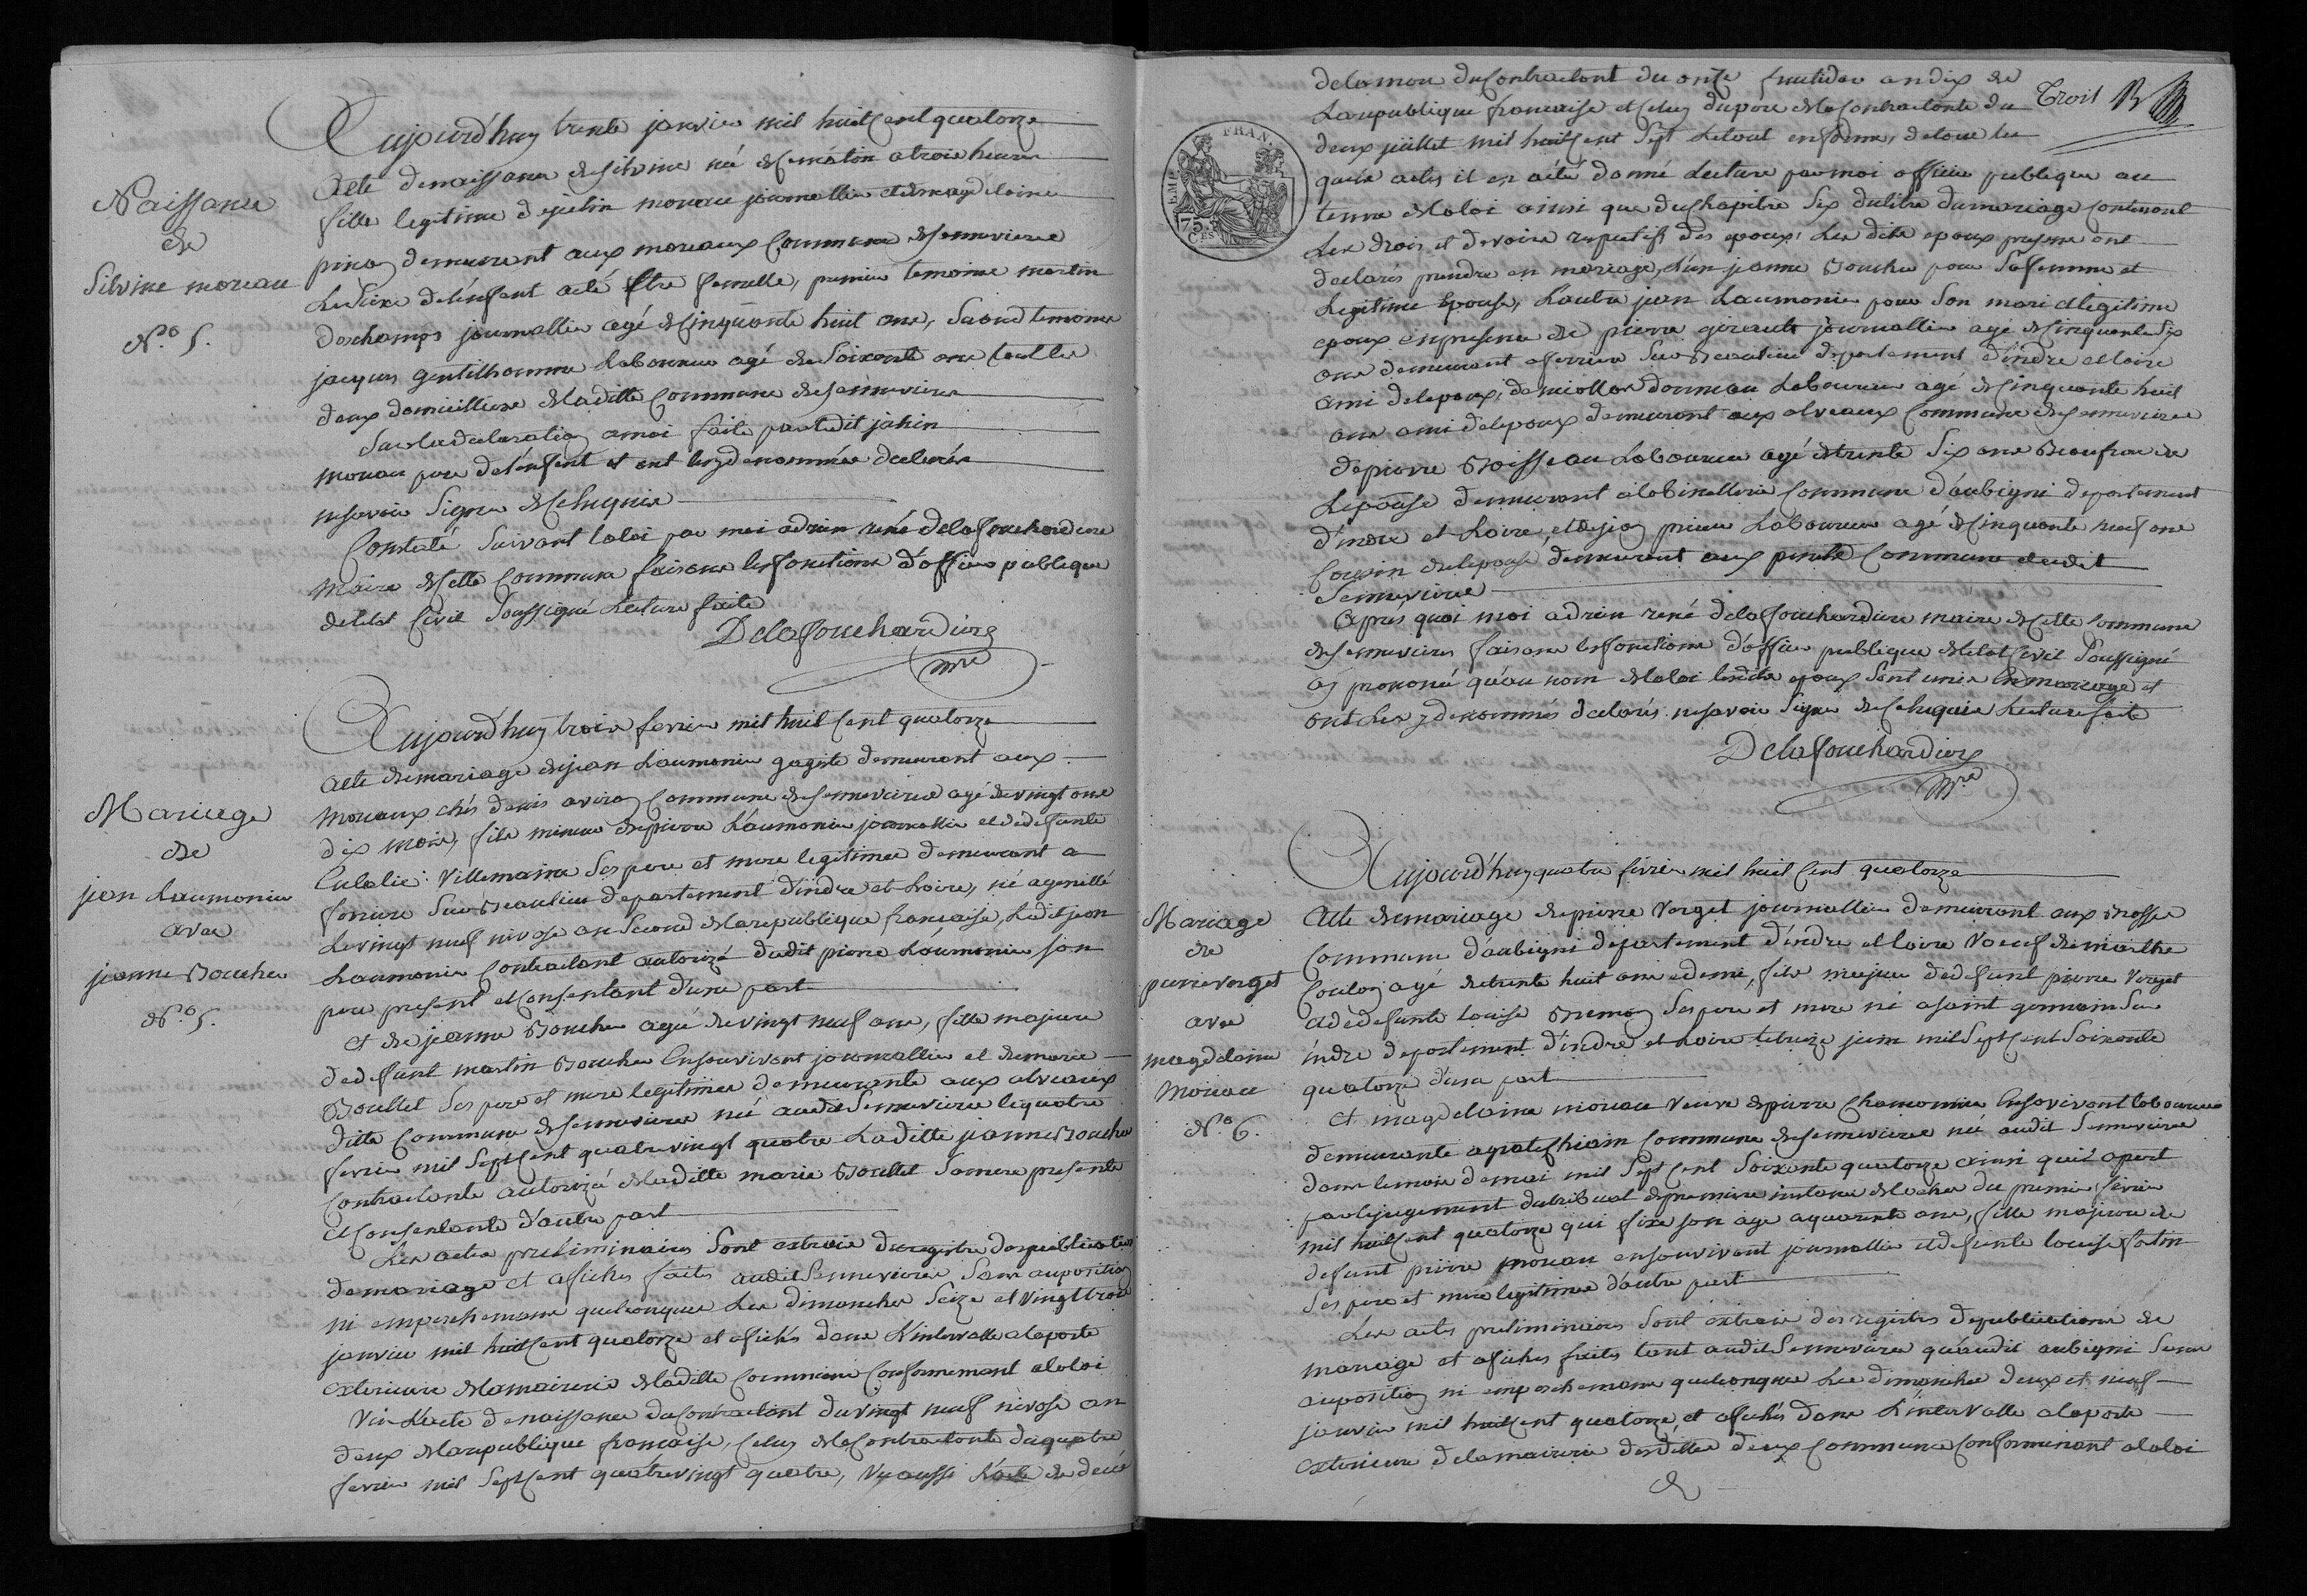 Naissance
de
Silvine moreau
N.o 5.
Aujourd'huy trente janvier mil huit cent quatorze
acte denaissance desilvine né dcematin atrois heures
fille legitime dejulin moreau journallier etdemagdelaine
pinon demeurant aux moreaux Commune desennevieres
LeSexe delénfant aété Etre femelle, premier temoins martin
deschamps journallier agé decinquante huit ans, Second temoins
jacques gentilhomme Laboureur agé deSoixante ans tout les
deux domicilliers deladitte Commune desennevieres
Surladeclaration amoi faite parledit julin
moreau pere delénfant et ont lesdenommés declarés
nesavoir Signer decelrequis
Constaté Suivant laloi par moi adrien réné delafouchardiere
Maire decette Commune faisans lesfonctions d'officier publique
deletat Civil Soussigné Lecture faite
Delafouchardiere
mre
Mariage
de
jean Laumonier
avec
jeanne Boucher
N.o 5.
Aujourd'huy trois fevrier mil huit cent quatorze
acte demariage dejean Laumonier gagiste demeurant aux
Moreaux chés denis aviron Commune desennevieres agé devingt ans
dix mois, fils mineur depierre Laumonier journallier et dedefunte
Eulalie Villemaine Ses pere et mere legitimes demeurant a
ferriere Sur Beaulieu departement d'indre et Loire, né agenillé
Levingt neuf nivose an Second delarepublique francaise, Ledit jean
Laumonier Contractant autorizé dudit pierre Laumonier son
pere present etConsentant d'une part
et de jeanne Boucher agée devingt neuf ans, fille majeure
dedefunt martin Boucher Ensonvivant journallier et demarie
Bouttet Ses pere et mere legitimes demeurante aux alveaux
ditte Commune desennevieres née audit Sennevieres lequatre
fevrier mil Septcent quatrevingt quatre Laditte jeanne Boucher
Contractante autorizé deladitte marie Bouttet Samere presente
etConsentante d'autre part
Les actes preliminaires Sont extrais duregistre despublications
demariage et afiches faites audit Sennevieres Sans auposition
ni empechemans quelconques Les dimanches Seize et vingttrois
janvier mil huitcent quatorze et afichés dans L'intervalle alaporte
exterieure delamairerie deladitte Commune Conformement alaloi
Vu L'acte denaissance ducontractant duvingt neuf nivose an
deux delarepublique francaise, Celuy delaContractante duquatre
fevrier mil Septcent quatrevingt quatre, Vu aussi L'acte de decés
Trois
delamere ducontractant du onze fructidor an dix de
Larepublique francaise et Celuy dupere delacontractante du
deux juillet mil huitcent Sept Letout enforme, detous les
quels actes il en aété donné Lecture par moi officier publique au
terme delaloi ainsi que duchapitre Six dutitre dumariage contenant
Les droits et devoirs respectifs des epoux, Les dits epoux present ont
declarés prendre en mariage, L'un jeanne Boucher pour Safemme et
Legitime Epouse, L'autre jean Laumonier pour Son mari etlegitime
epoux enpresence de pierre girault journallier agé decinquante Six
ans demeurant aferriere Sur Beaulieu departement d'indre etloire
ami delepoux, denicollas donneau Laboureur agé decinquante huit
ans ami delepoux demeurant aux alveaux Commune desennevieres
depierre Boisseau Laboureur agé detrente Six ans Beaufrere de
Lepouse demeurant alabinellerie Commune d'aubigni departement
d'indre et Loire, etdejean prieur Laboureur agé decinquante neuf ans
Cousin delepouse demeurant aux perrets Commune dudit
Sennevieres
Aprés quoi moi adrien réné delafouchardiere maire decette Commune
desennevieres faisans lesfonctions d'officier publique deletat Civil Soussigné
ay prononcé qu'au nom delaloi lesdits epoux Sont unis En mariage et
ont Les 7 denommés declarés nesavoir Signer decelrequis Lecture faite
Delafouchardiere
Mre
EMP. FRAN.
75
Ces
Mariage
de
pierre verget
avec
magdelaine
Moreau
N.o 6.
Aujourd'huy quatre fevrier mil huit cent quatorze
Acte demariage depierre Verget journallier demeurant aux Brosses
Commune d'aubigni departement d'indre etloire Voeuf demarthe
Coulon agé detrente huit ans edemi, fils majeur dedefunt pierre Verget
etdedefunte Louise Bremon Ses pere et mere né asaint germain Sur
indre departement d'indre et Loire letreize juin mil Septcent Soixante
quatorze d'une part
Et magdelaine moreau Veuve depierre Chamonnier Ensonvivant laboureur
demeurante agratechiain Commune desennevieres née audit Sennevieres
dans lemois demai mil Septcent Soixante quatorze ainsi quil apert
parlejugement dutribunal depremiere instance deLoches du premier fevrier
mil huitcent quatorze qui fixe son age aquarante ans, fille majeure de
defunt pierre moreau ensonvivant journallier etdefunte Louise fatin
Ses pere et mere legitimes d'autre part
Les actes preliminaires Sont extrais des registres depublications de
mariage et afiches faites tant audit Sennevieres qu'audit aubigni Sans
auposition ni empechemans quelconques Les dimanches deux et neuf
janvier mil huitcent quatorze, et afichés dans L'intervalle alaporte
exterieure delamairerie desdittes deux Communes Conformement alaloi